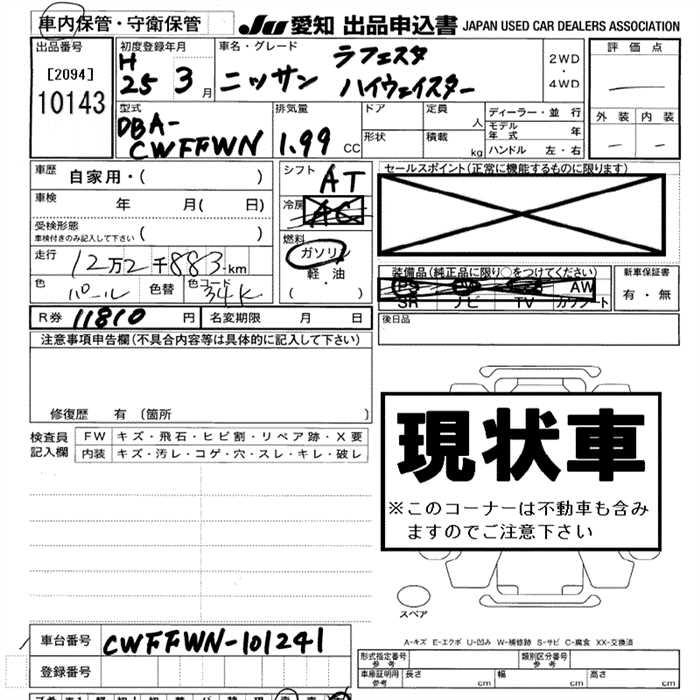 車内保管・守衛保管
JU 愛知 出品申込書 JAPAN USED CAR DEALERS ASSOCIATION
出品番号
[2094]
10143
初度登録年月
H 25 3 月
車名・グレード
ニッサン ラフェスタ
ハイウェイスター
2WD
・
4WD
評価点
外装 内装
型式
DBA-
CWFFWN
排気量
1.99 CC
ドア
定員 人
形状
積載 kg
ディーラー・並行
モデル年式 年
ハンドル 左・右
車歴 自家用・( )
車検 年 月( 日)
受検形態
車検付きのみ記入して下さい ( )
走行 12万2千883km
色 パール 色替 色コード
シフト AT
冷房 AC
燃料
ガソリン
軽・油
( ・ )
セールスポイント(正常に機能するものに限ります)
装備品(純正品に限り○をつけてください)
PS AW
SR ナビ TV カワシート
新車保証書
有・無
後日品
R券 11810 円 名変期限 月 日
注意事項申告欄(不具合内容等は具体的に記入して下さい)
修復歴 有(箇所 )
検査員
記入欄
FW キズ・飛石・ヒビ割・リペア跡・X要
内装 キズ・汚レ・コゲ・穴・スレ・キレ・破レ
現状車
※このコーナーは不動車も含み
ますのでご注意下さい
スペア
A-キズ E-エクボ U-凹み W-補修跡 S-サビ C-腐食 XX-交換済
車台番号 CWFFWN-101241
登録番号
形式指定番号
参考
類別区分番号
参考
車庫証明用
参考
長さ cm 幅 cm 高さ cm